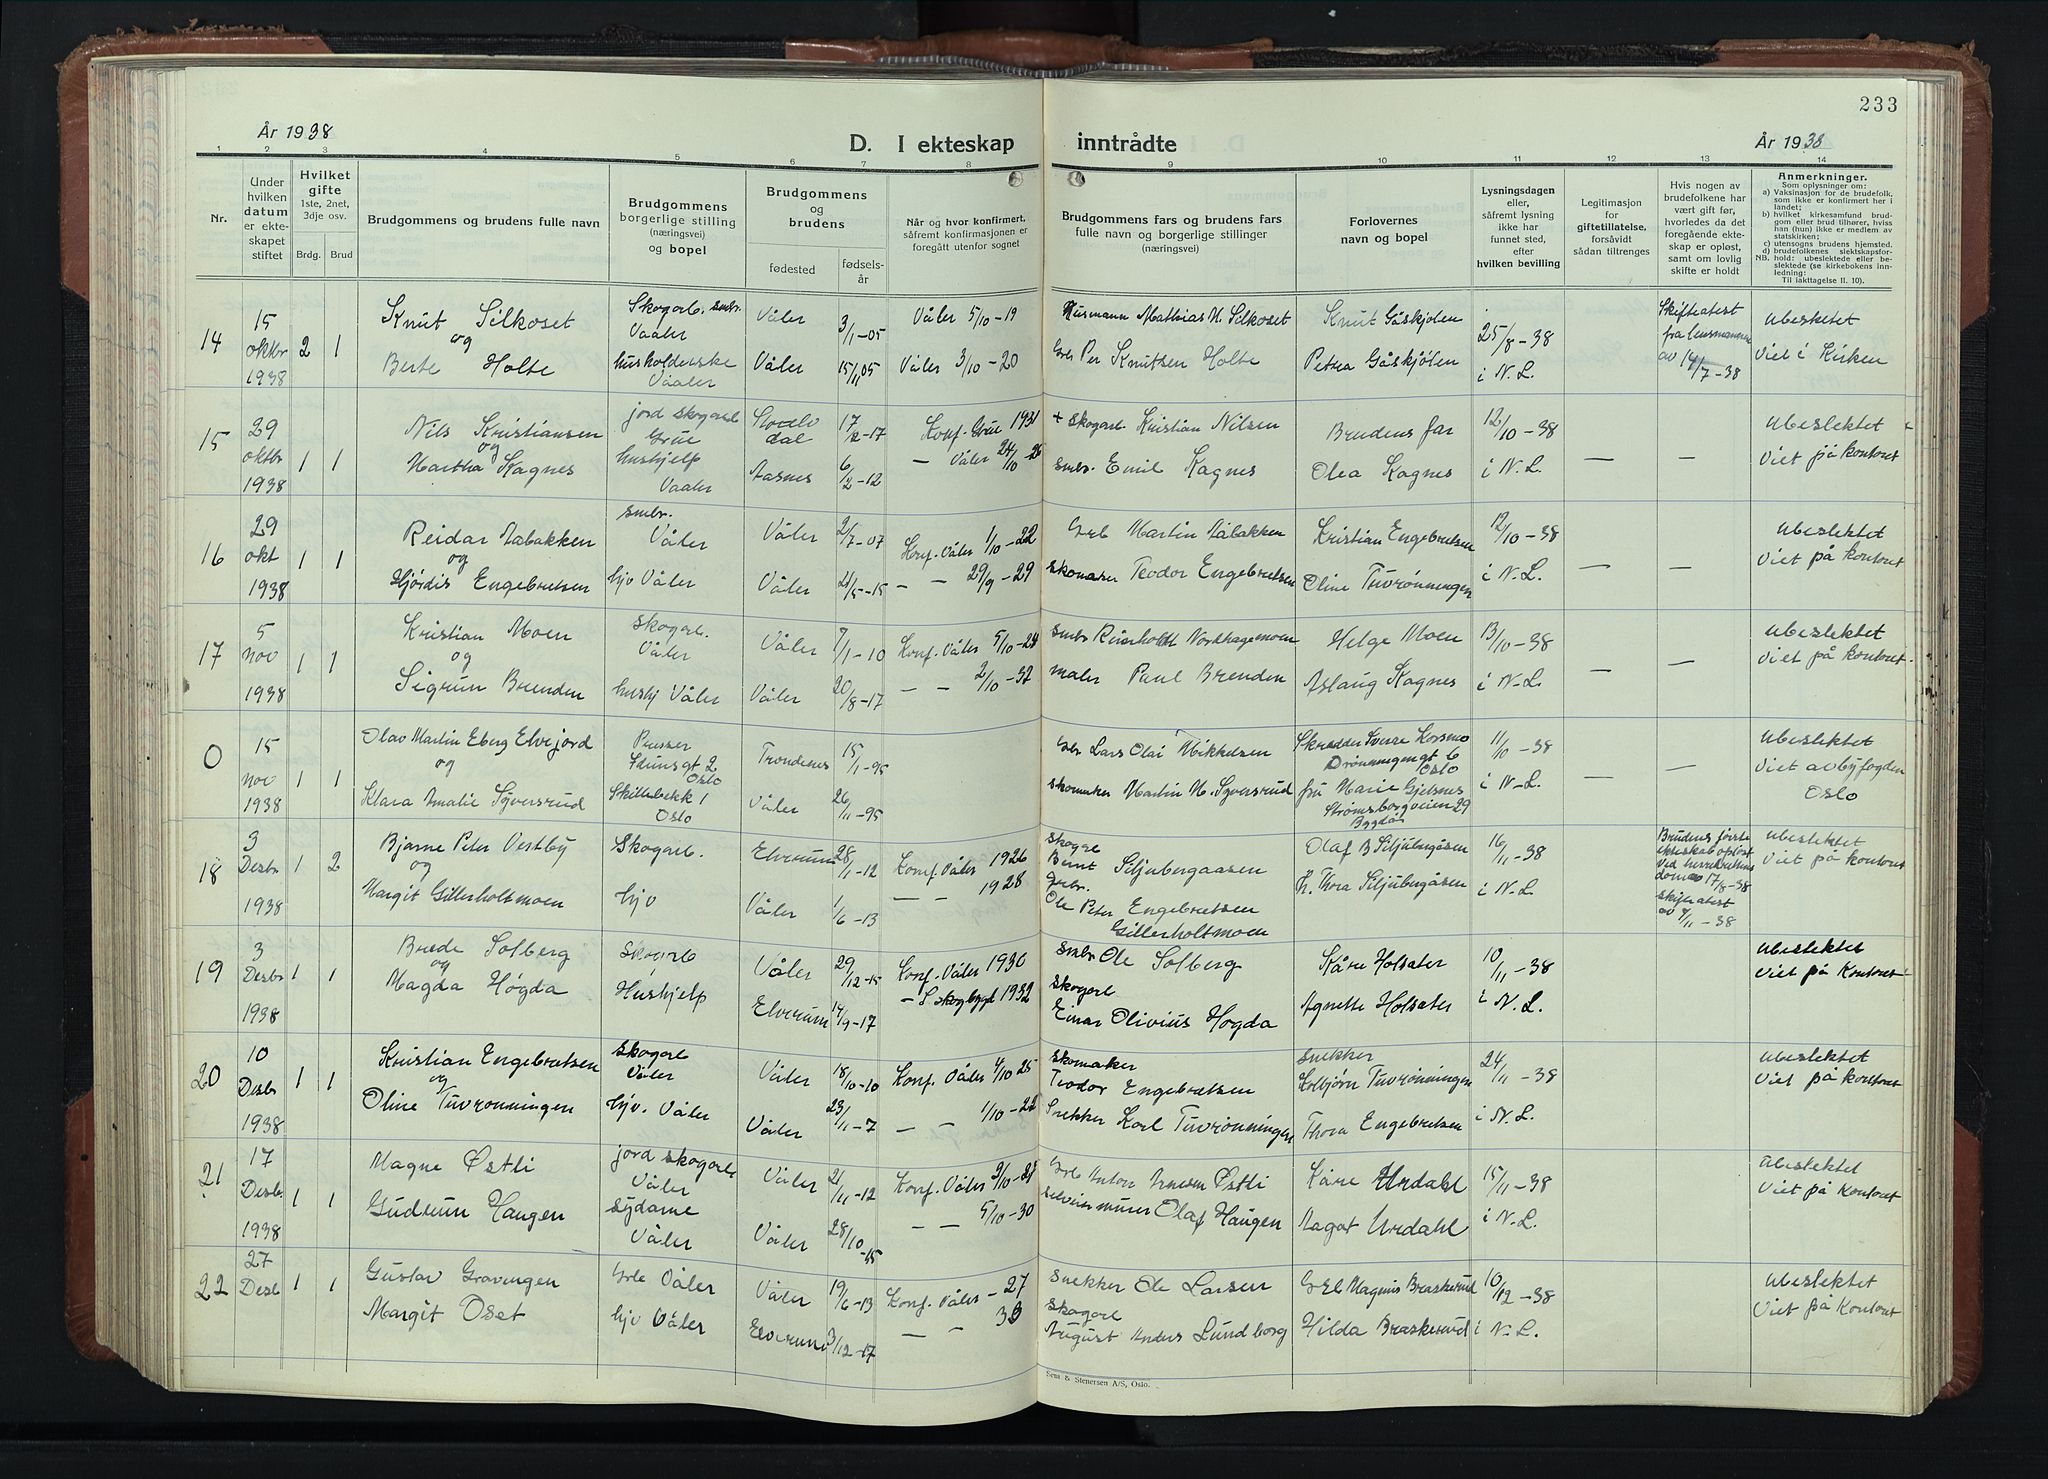 233
År 1938
D. I ekteskap inntrådte
År 1938
1 2 3 4 5 6 7 8 9 10 11 12 13 14
Nr.
Under hvilken datum er ekteskapet stiftet
Hvilket gifte 1ste, 2net, 3dje osv.
Brdg. Brud
Brudgommens og brudens fulle navn
Brudgommens borgerlige stilling (næringsvei) og bopel
Brudgommens og brudens
fødested
fødselsår
Når og hvor konfirmert, såfremt konfirmasjonen er foregått utenfor sognet
Brudgommens fars og brudens fars fulle navn og borgerlige stillinger (næringsvei)
Forlovernes navn og bopel
Lysningsdagen eller, såfremt lysning ikke har funnet sted, efter hvilken bevilling
Legitimasjon for giftetillatelse, forsåvidt sådan tiltrenges
Hvis nogen av brudefolkene har vært gift før, hvorledes da det foregående ekteskap er opløst, samt om lovlig skifte er holdt
Anmerkninger.
Som oplysninger om:
a) Vaksinasjon for de brudefolk, som ikke er konfirmert her i landet;
b) hvilket kirkesamfund brudgom eller brud tilhører, hvis han (hun) ikke er medlem av statskirken;
c) utensogns brudens hjemsted.
d) brudefolkenes slektskapsforhold: ubeslektede eller beslektede (se kirkebokens innledning:
NB. Til iakttagelse II. 10).
14 15 oktbr 1938 2 1
Knut Silkoset og Skogarb. smbr. Vaaler Våler 3/1-05 Våler 5/10-19 Husmann Mathias M. Silkoset Knut Gåskjølen 25/8-38 i N.L. Skifteatest fra lensmannen av 14/7-38 Ubesketet
Berte Holte husholderske Vaaler Våler 15/11 05 Våler 3/10-20 Per Knutsen Holte Petra Gåskjølen Viet i Kirken
15 29 oktbr 1938 1 1
Nils Kristiansen og jord skogarb Grue 17/2-17 Konf. Grue 1931 + skogarb. Kristian Nilsen Brudens far 12/10-38 i N.L. — — Ubeslektet
Martha Kagnes hushjelp Vaaler Aasnes 6/2-12 — Våler 24/10-26 smbr. Emil Kagnes Olea Kagnes Viet på kontoret
16 29 okt 1938 1 1
Reidar Aabakken og smbr. Våler Våler 2/7-07 Konf. Våler 1/10-22 Martin Aabakken Kristian Engebretsen 12/10-38 i N.L. — — Ubeslektet
Hjørdis Engebretsen hjv Våler Våler 21/5-15 — — 29/9-29 skomaker Teodor Engebretsen Oline Tuvrønningen Viet på kontoret
17 5 nov 1938 1 1
Kristian Moen og skogarb. Våler Våler 7/1-10 Konf. Våler 5/10-24 smbr Nordhagemoen Helge Moen 13/10-38 i N.L. — — Ubeslektet
Sigrun Brenden hushj Våler Våler 20/8-17 — — 2/10-32 maler Paul Brenden Aslaug Kagnes Viet på kontoret.
0 15 nov 1938 1 1
Olav Martin Eberg Elvejord og Presser Idunsgt 2 Oslo Trondenes 15/1-95 Lars Olai Mikkelsen Skredder Sverre Korsmo Dronningengt 6 Oslo 11/10-38 i N-L. — — Ubeslektet
Klara Amalie Syversrud Skillebekk 1 Oslo Våler 26/11-95 skomaker Martin M. Syversrud fru Marie Gjelsnes Strømsborgveien 29 Bygdø Viet av byfogden Oslo
18 3 Desbr 1938 1 2
Bjarne Peter Vestby og Skogarb. Elverum 28/1-12 Konf. Våler 1926 Skogrb Bernt Siljubergaasen Olaf B Siljubergåsen 16/11-38 i N.L. Brudens første ekteskab opløst ved herredrettens dom av 17/8-38 skifteatest av 9/11-38 Ubeslektet
Margit Gillerholtmoen hjv Våler 1/6-13 — — 1928 Ole Peter Engebretsen Gillerholtmoen fr. Thora Siljubergåsen Viet på kontoret
19 3 Desbr 1938 1 1
Brede Solberg og Skogarb Våler 29/12-15 Konf. Våler 1930 smbr Ole Solberg Kåre Holsater 10/11-38 i N.L. Ubeslektet
Magda Høgda Hushjelp Elverum 14/9-17 — S. skogbygd 1932 skogarb Einar Olivius Høgda Agnette Holsater Viet på Kontoret
20 10 Desbr 1938 1 1
Kristian Engebretsen og skogarb Våler Våler 18/10-10 Konf. Våler 4/10-25 skomaker Teodor Engebretsen snekker Kolbjørn Tuvrønningen 24/11-38 i N.L. Ubeslektet
Oline Tuvrønningen hjv. Våler Våler 23/11-7 — — 1/10-22 Snekker Karl Tuvrønningen Thora Engebretsen Viet på kontoret
21 17 Desbr. 1938 1 1
Magne Østli jord skogarb Våler Våler 21/11-12 Konf. Våler Anton Østli Kåre Urdahl 15/11-38 i N.L. Ubeslektet
Gudrun Haugen sydame Våler Våler 28/10-15 — — 5/10-30 murer Olaf Haugen Aagot Urdahl Viet på kontoret
22 27 Desb 1 1
Gustav Gravingen Våler Våler 19/6-13 Konf. Våler -27 snekker Ole Larsen Magnus Braskerud 10/12-38 i N.L. Ubeslektet
Margit Oset hjv Våler Elverum 3/12-17 — — skogarb August Anders Lundborg Hilda Braskerud Viet på Kontoret
Sem & Stenersen A/S, Oslo.